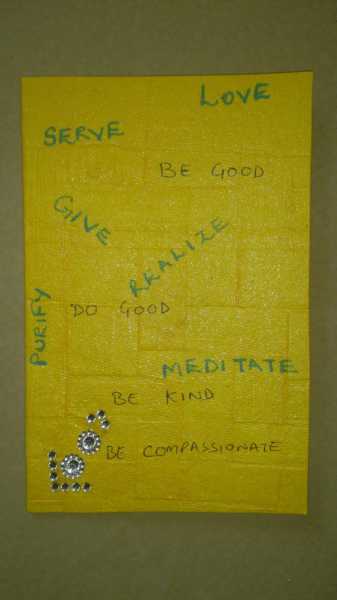 LOVE
SERVE
BE GOOD
GIVE
REALIZE
PURIFY
DO GOOD
MEDITATE
BE KIND
BE COMPASSIONATE